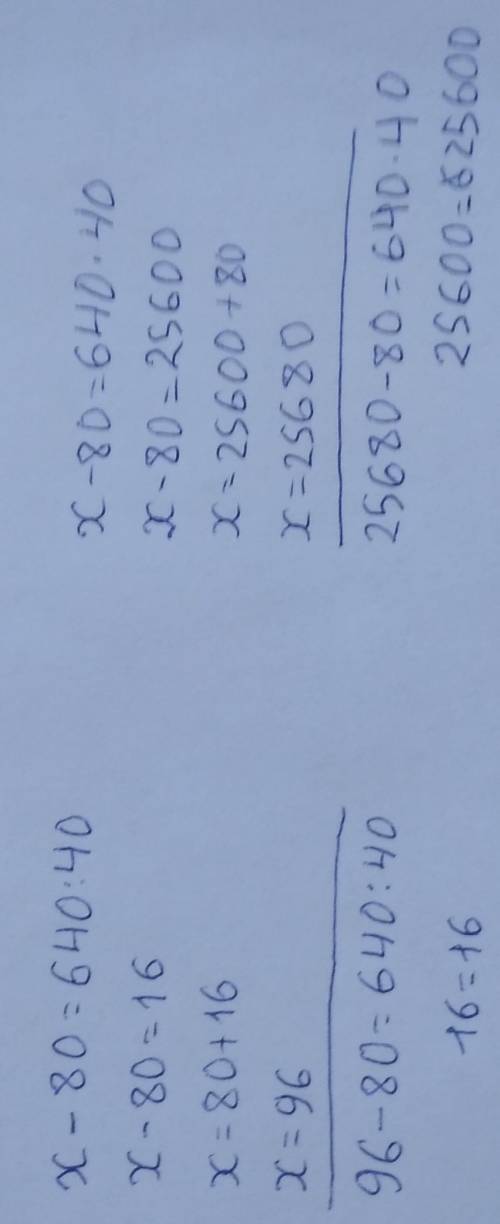 x - 80 = 640 : 40
x - 80 = 16
x = 80 + 16
x = 96
96 - 80 = 640 : 40
16 = 16
x - 80 = 640 · 40
x - 80 = 25600
x = 25600 + 80
x = 25680
25680 - 80 = 640 · 40
25600 = 625600